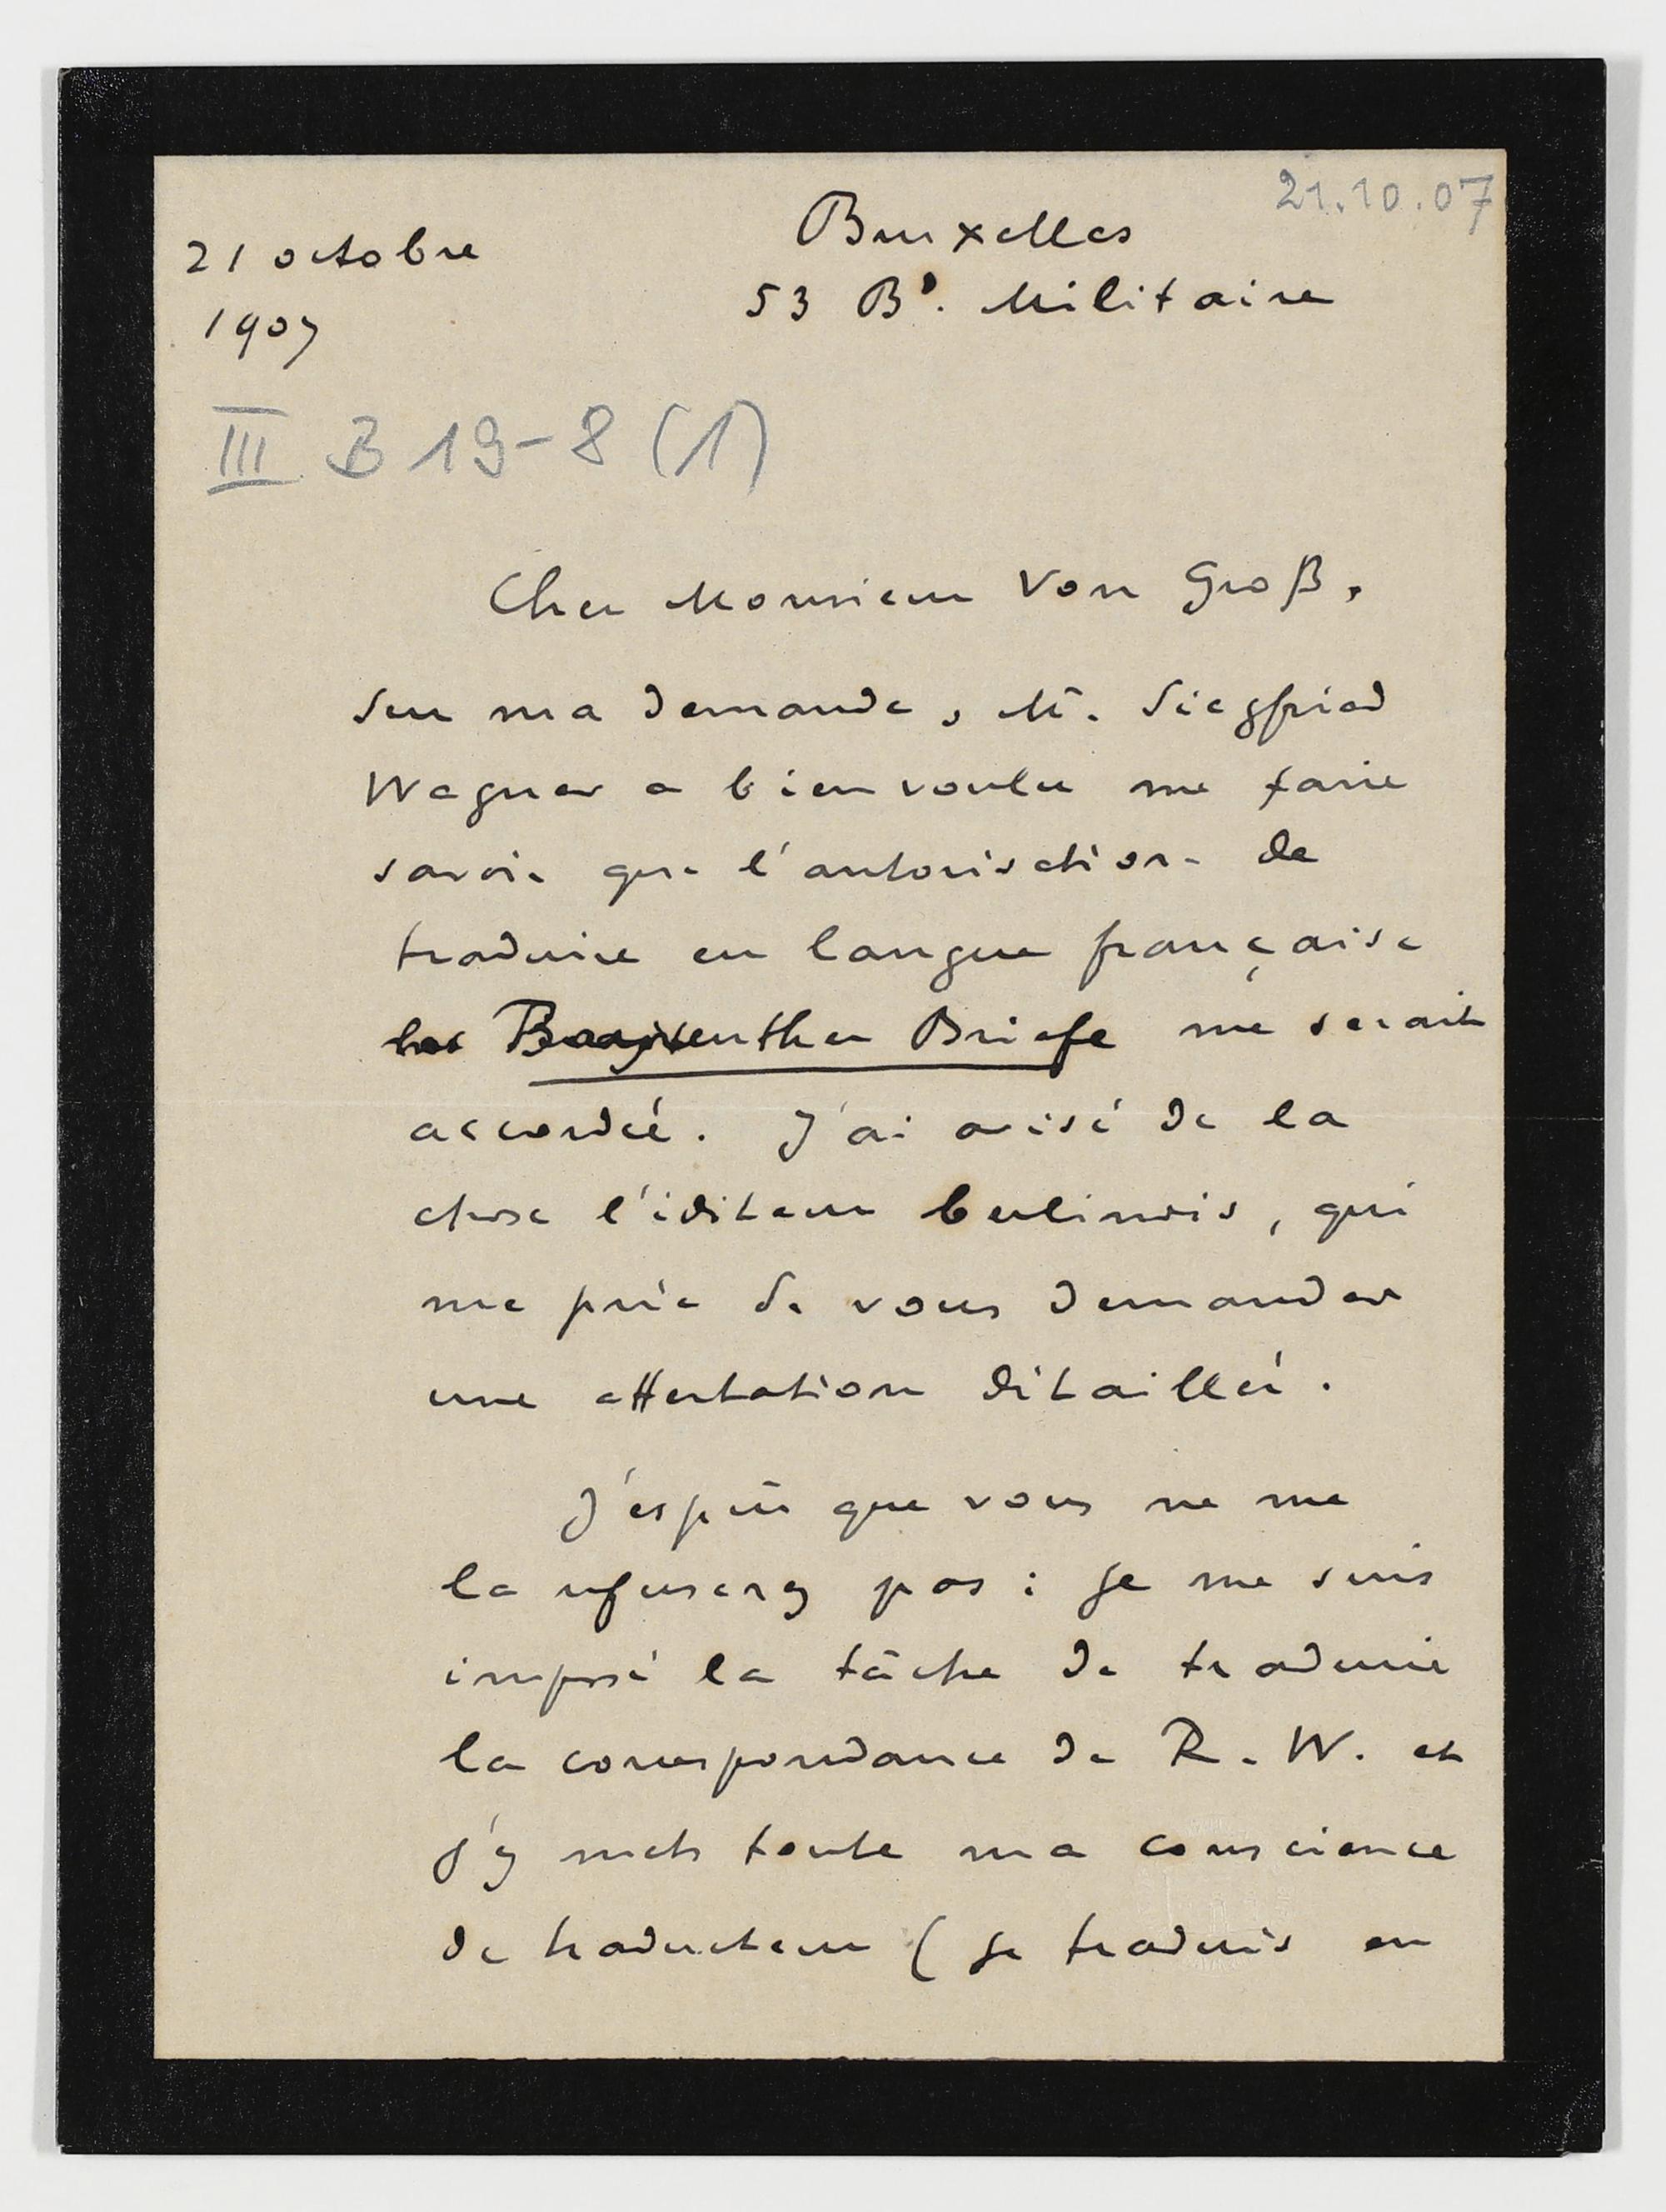 21.10.07
Bruxelles
53 Bd. Militaire
21 octobre
1907
III B 19-8 (1)
Cher Monsieur Von Groß,
Sur ma demande, M. Siegfried
Wagner a bien voulu me faire
savoir que l'autorisation de
traduire en langue française
les Bayreuther Briefe me serait
accordée. J'ai avisé de la
chose l'éditeur berlinois, qui
me prie de vous demander
une attestation détaillée.
J'espère que vous ne me
la refuserez pas : je me suis
imposé la tâche de traduire
la correspondance de R. W. et
j'y mets toute ma conscience
de traducteur (je traduis en